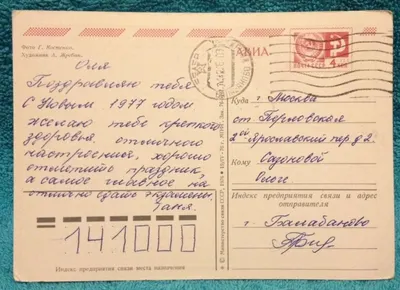 Фото Г. Костенко.
Художник А. Жребин.
АВИА
4 КОП
Оля
Поздравляю тебя
С Новым 1977 годом
желаю тебе крепкого
здоровья, отличного
настроения, хорошо
праздник,
а самое главное на
отлично сдать экзамены
Таня.
141000
Индекс предприятия связи места назначения
Куда г Москва
от Перловской
2ой Ярославский пер д 2.
Кому Сазоновой
Ольге
Индекс предприятия связи и адрес
отправителя
г Балабаново
© Министерство связи СССР, 1976